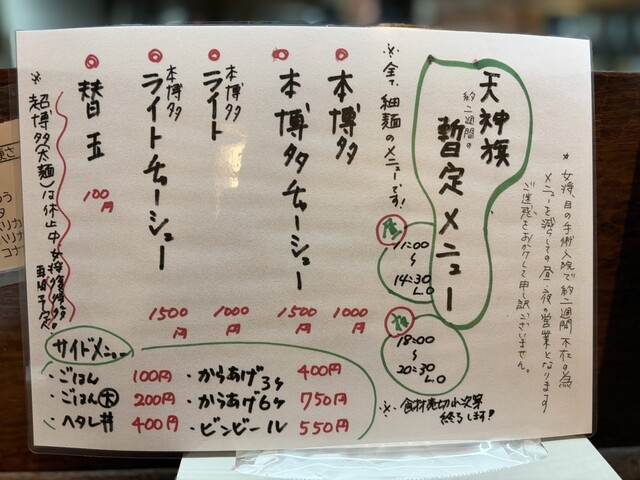 ★女将、目の手術入院で約二週間 不在の為
メニューを減らしての昼・夜の営業となります
ご迷惑をおかけして申し訳ございません。
天神族
約二週間の
暫定メニュー
※全て細麺のメニューです!
昼
11:00
〜
14:30
L.O
夜
18:00
〜
20:30
L.O
※食材売切れ次第
終了します!
本博多
1000円
本博多チャーシュー
1500円
本博多
ライト
1000円
本博多
ライトチャーシュー
1500円
替玉
100円
※超博多(太麺)は休止中
サイドメニュー
・ごはん 100円
・ごはん大 200円
・ヘタレ丼 400円
・からあげ3ヶ 400円
・からあげ6ヶ 750円
・ビンビール 550円